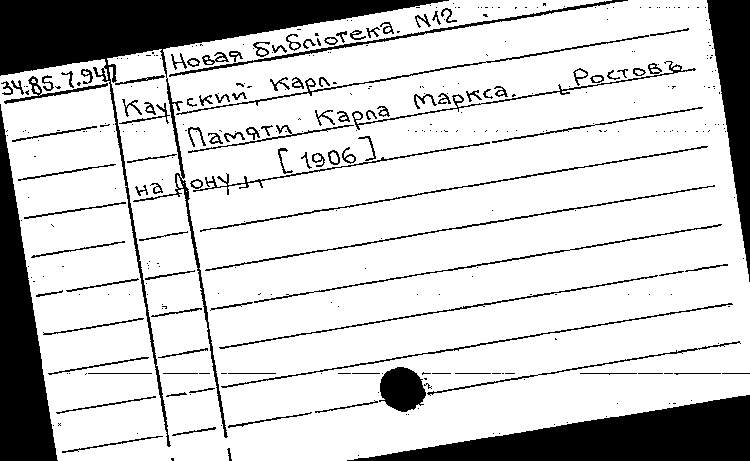 Новая библіотека. N12
34.85.7.947
Каутский, Карл.
Памяти Карла Маркса. [Ростовъ
на Дону], [1906].